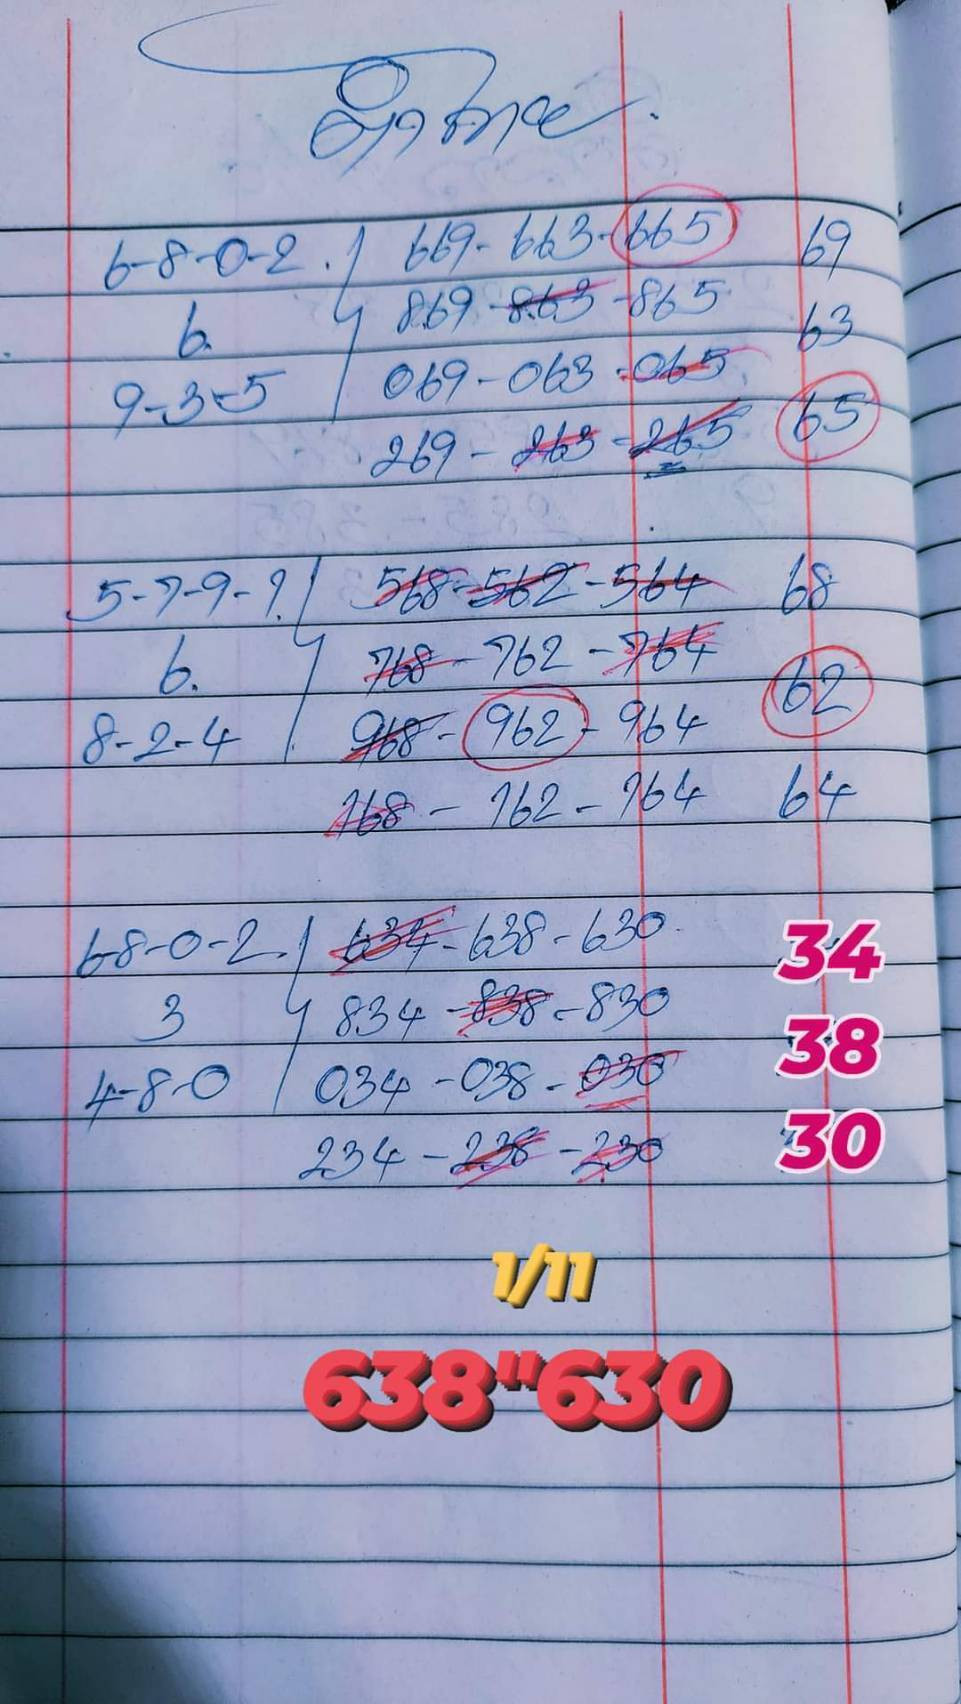 6-8-0-2. 669-663-665 69
6. 869-863-865 63
9-3-5 069-063-065 65
269-263-265
5-7-9-1. 568-562-564 68
6. 768-762-764 62
8-2-4 968-962-964 64
168-162-164
6-8-0-2. 634-638-630 34
3 834-838-830 38
4-8-0 034-038-030 30
234-238-230
1/11
638"630